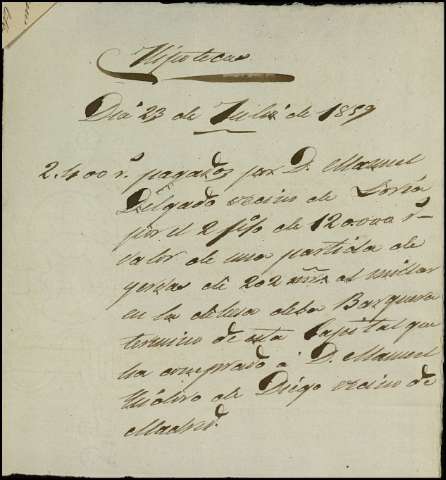 Hipotecas
Dia 23 de Julio de 1859
2.400 r.s pagados por D. Manuel
Delgado vecino de Soria
por el 2 p% de 120.000 r.s
valor de una partida de
yerbas de 202 al millar
en la dehesa de la
termino de esta Capital que
ha comprado á D. Manuel
de Diego vecino de
Madrid.